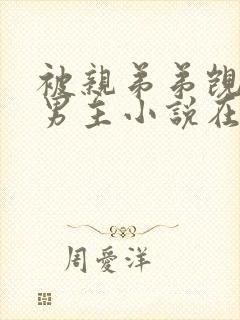 被親弟弟覬
男主小說在
周愛洋